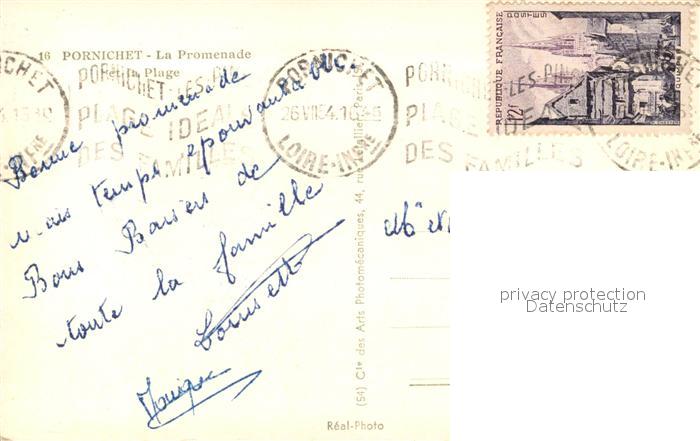 16 PORNICHET - La Promenade
et la Plage
PORNICHET-LES-PINS
PLAGE IDEALE
DES FAMILLES
PORNICHET
26 VII 54
LOIRE-INFRE
PORNICHET-LES-PINS
PLAGE
DES FAMILLES
REPUBLIQUE FRANÇAISE
POSTES
12F
QUIMPER
Bonne promenade
mais temps épouvantable
Bons Baisers de
toute la famille
Louisette
Monique
(54) Cie des Arts Photomécaniques, 44, rue Paris
Réal-Photo
privacy protection
Datenschutz